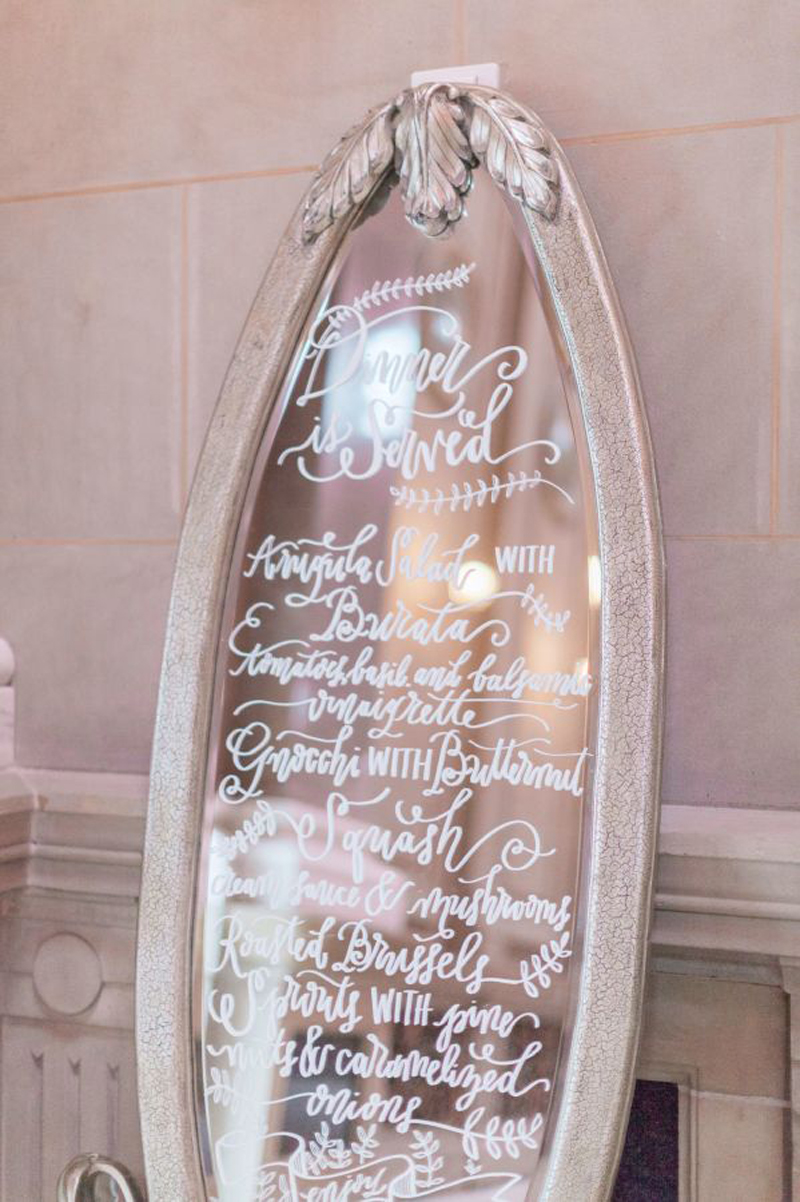 Dinner
is Served
Arugula Salad WITH
Burata
tomatoes, basil and balsamic
vinaigrette
Gnocchi WITH Butternut
Squash
cream sauce & mushrooms
Roasted Brussels
Sprouts WITH pine
nuts & caramelized
onions
enjoy